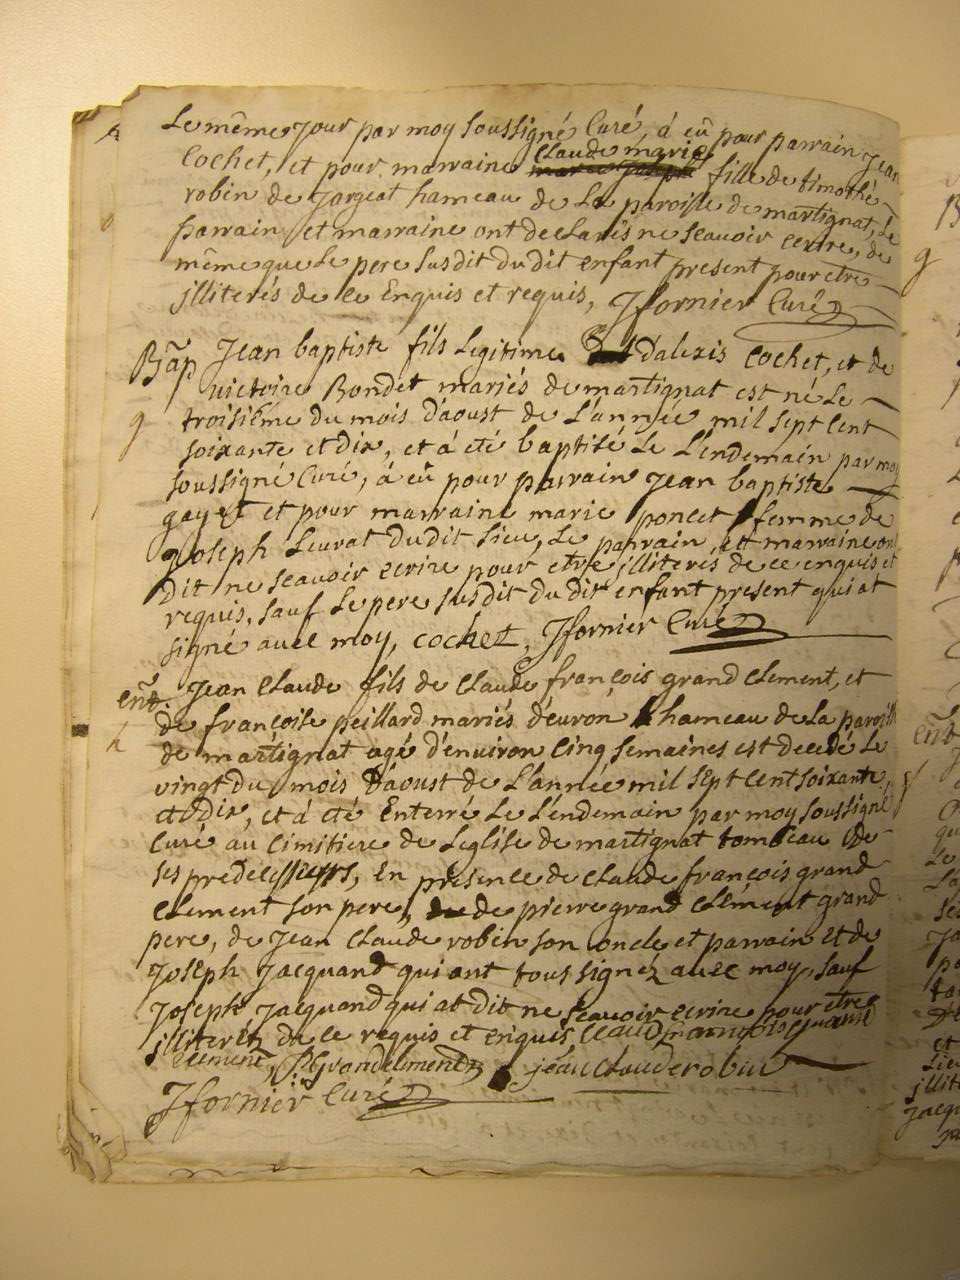 Le même jour par moy soussigné Curé, à eû pour parrain jean
Cochet, et pour marraine claude marie fille de timothé
robin de jargeat hameau de La paroisse de martignat, Le
parrain et marraine ont declarés ne scavoir ecrire, de
même que Le pere susdit du dit enfant present pour etre
jlliterés de ce Enquis et requis, Jfornier Curé
Bap Jean baptiste fils Legitime d'alexis Cochet, et de
victoire Bondet mariés de martignat est né Le
9 troisième du mois d'aoust de L'année mil sept Cent
soixante et dix, et à été baptisé Le L'endemain par moy
soussigné Curé, à eû pour parrain jean baptiste
gayet et pour marraine marie poncet femme de
joseph Leurat dudit Lieu, Le parrain, et marraine on
dit ne scavoir ecrire pour etre jlliterés de ce enquis et
requis, sauf Le pere susdit du dit enfant present qui at
signé avec moy, cochet, Jfornier Curé
ent. Jean Claude fils de Claude françois grand Clement, et
de françoise peillard mariés d'euron hameau de La paroiss
h de martignat agé d'environ Cinq semaines est decedé Le
vingt du mois d'aoust de L'année mil sept Cent soixante
et dix, et à été Enterré Le L'endemain par moy soussigné
Curé au Cimitiere de L'eglise de martignat tombeau de
ses predecesseurs, En présence de Claude françois grand
Clement son pere, de pierre grand Clément grand
pere, de Jean Claude robin son oncle et parrain et de
Joseph Jacquand qui ont tous signéz avec moy, sauf
Joseph Jacquand qui at dit ne scavoir ecrire pour etre
jlliteréz de ce requis et enquis, Claud francois grand
clement, P Grandclement jean claude robin
Jfornier Curé